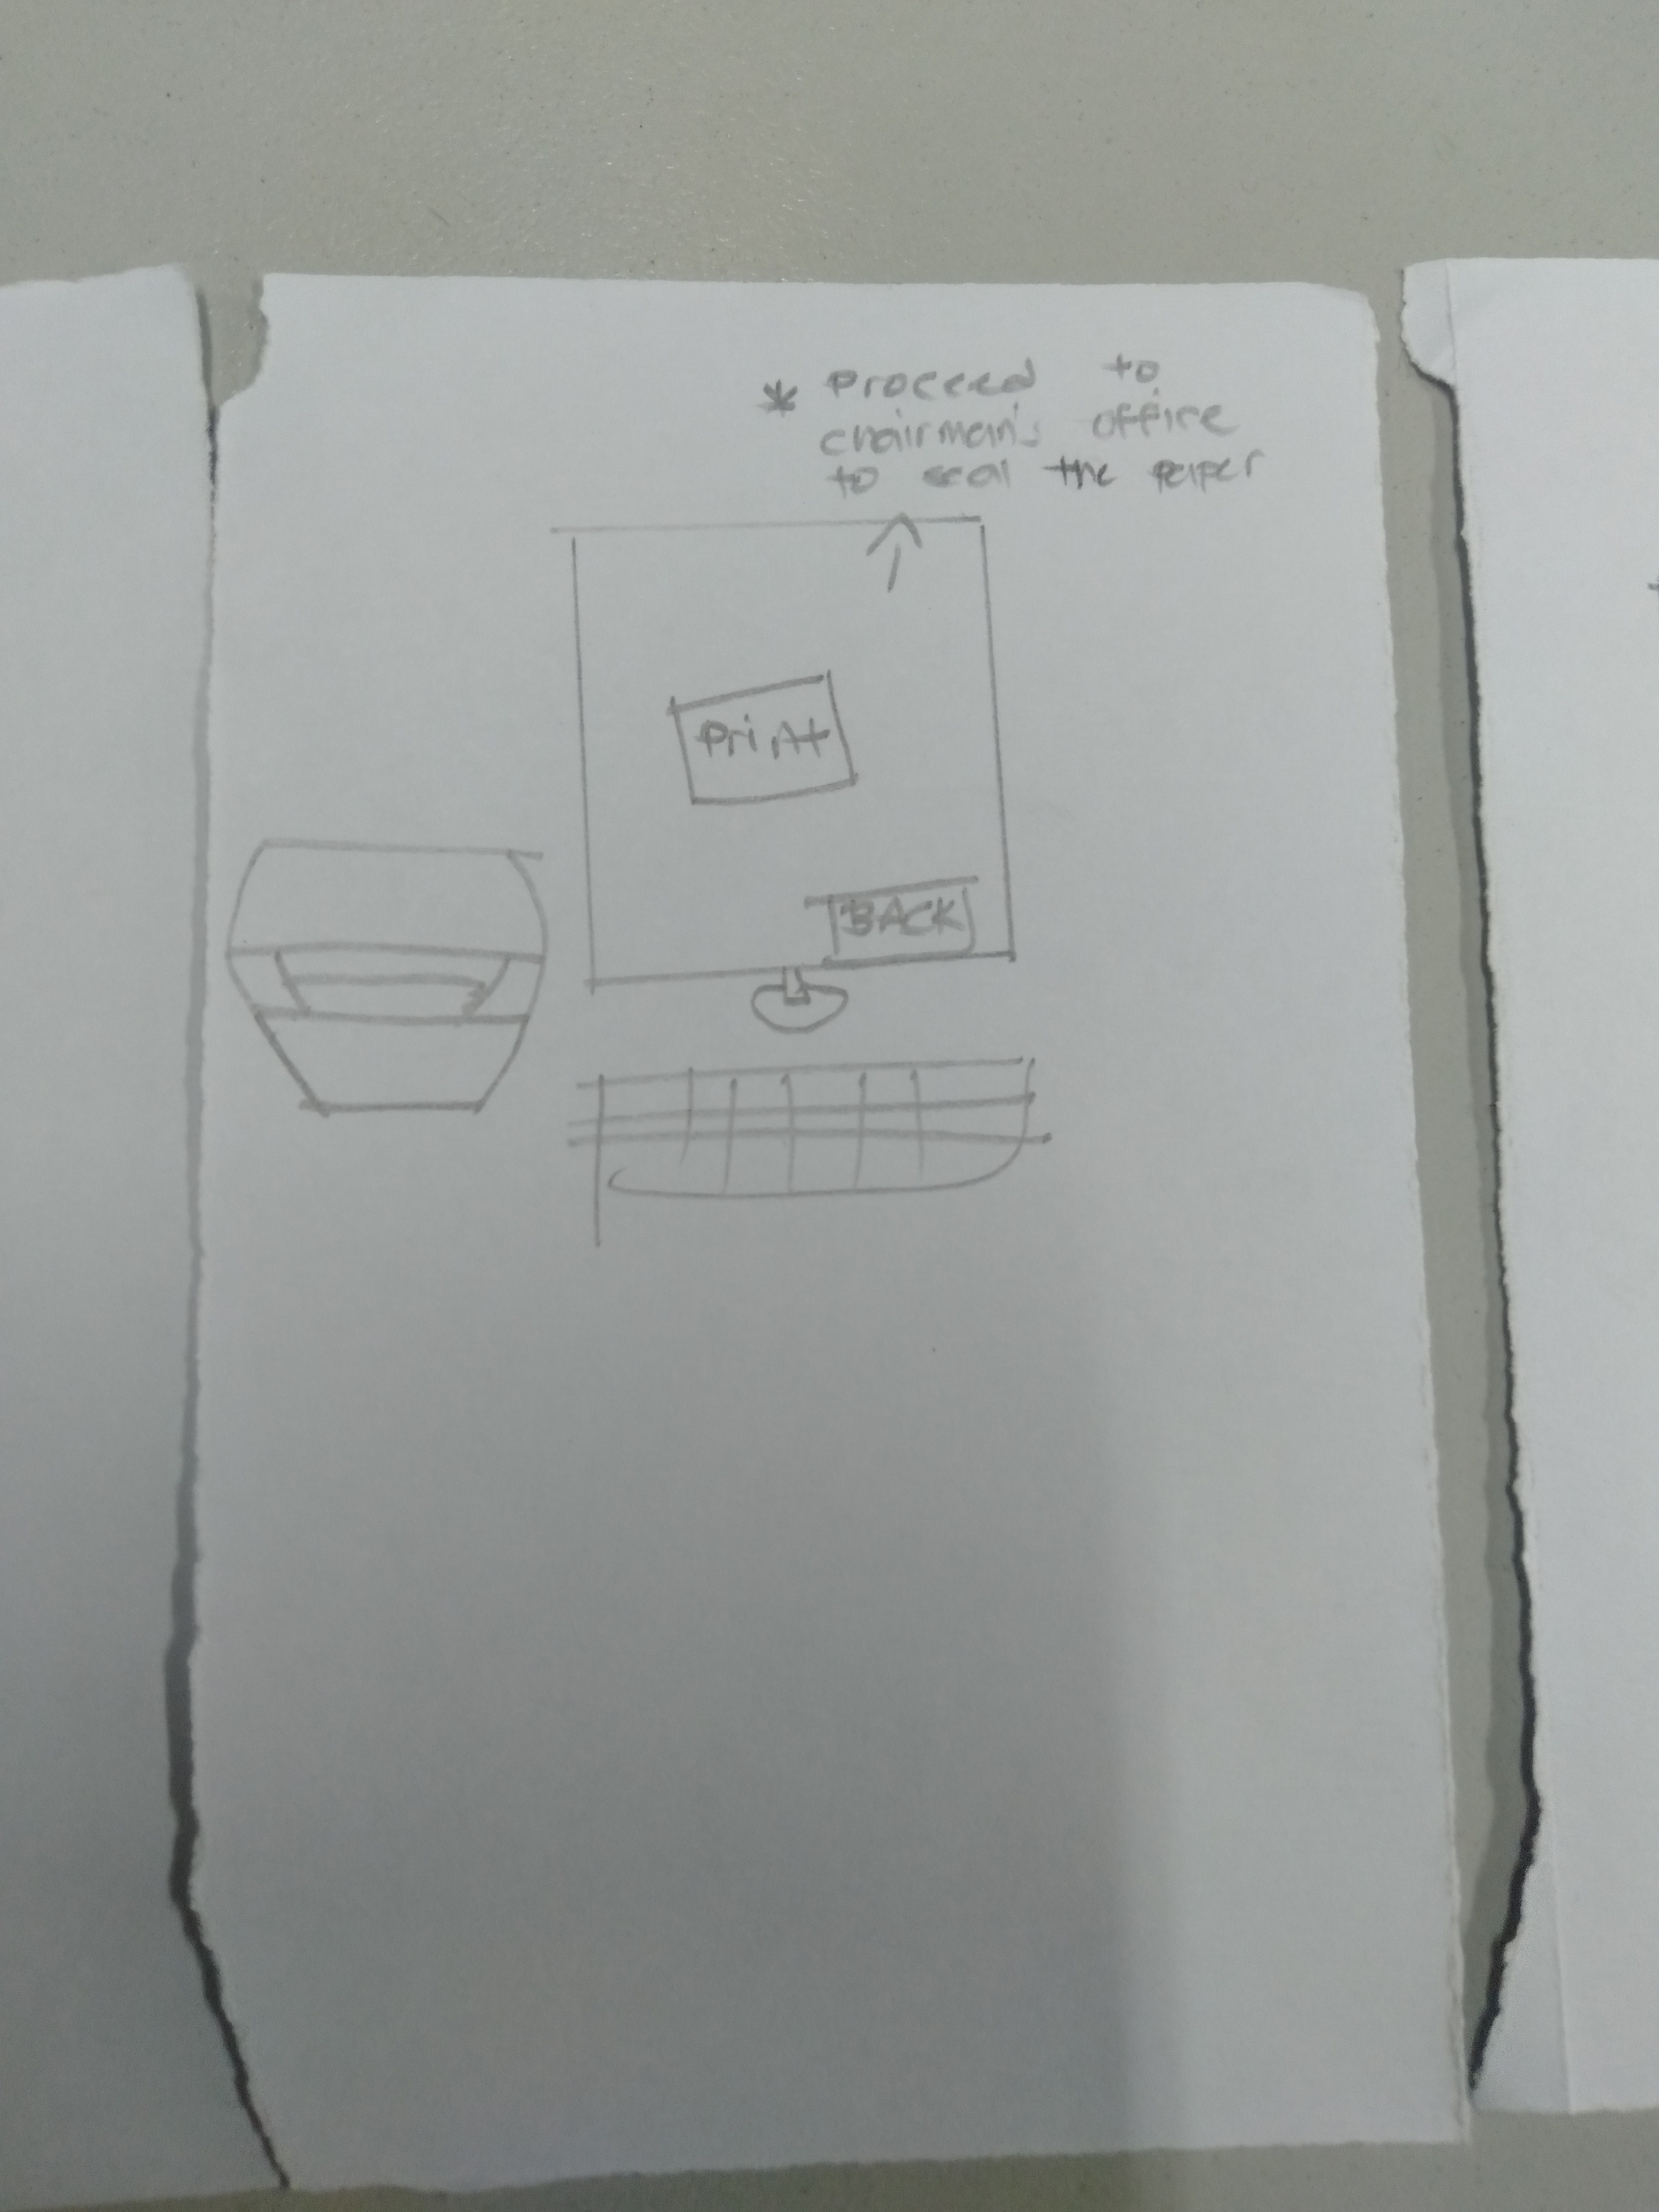 * Proceed to
chairman's office
to seal the paper
Print
BACK